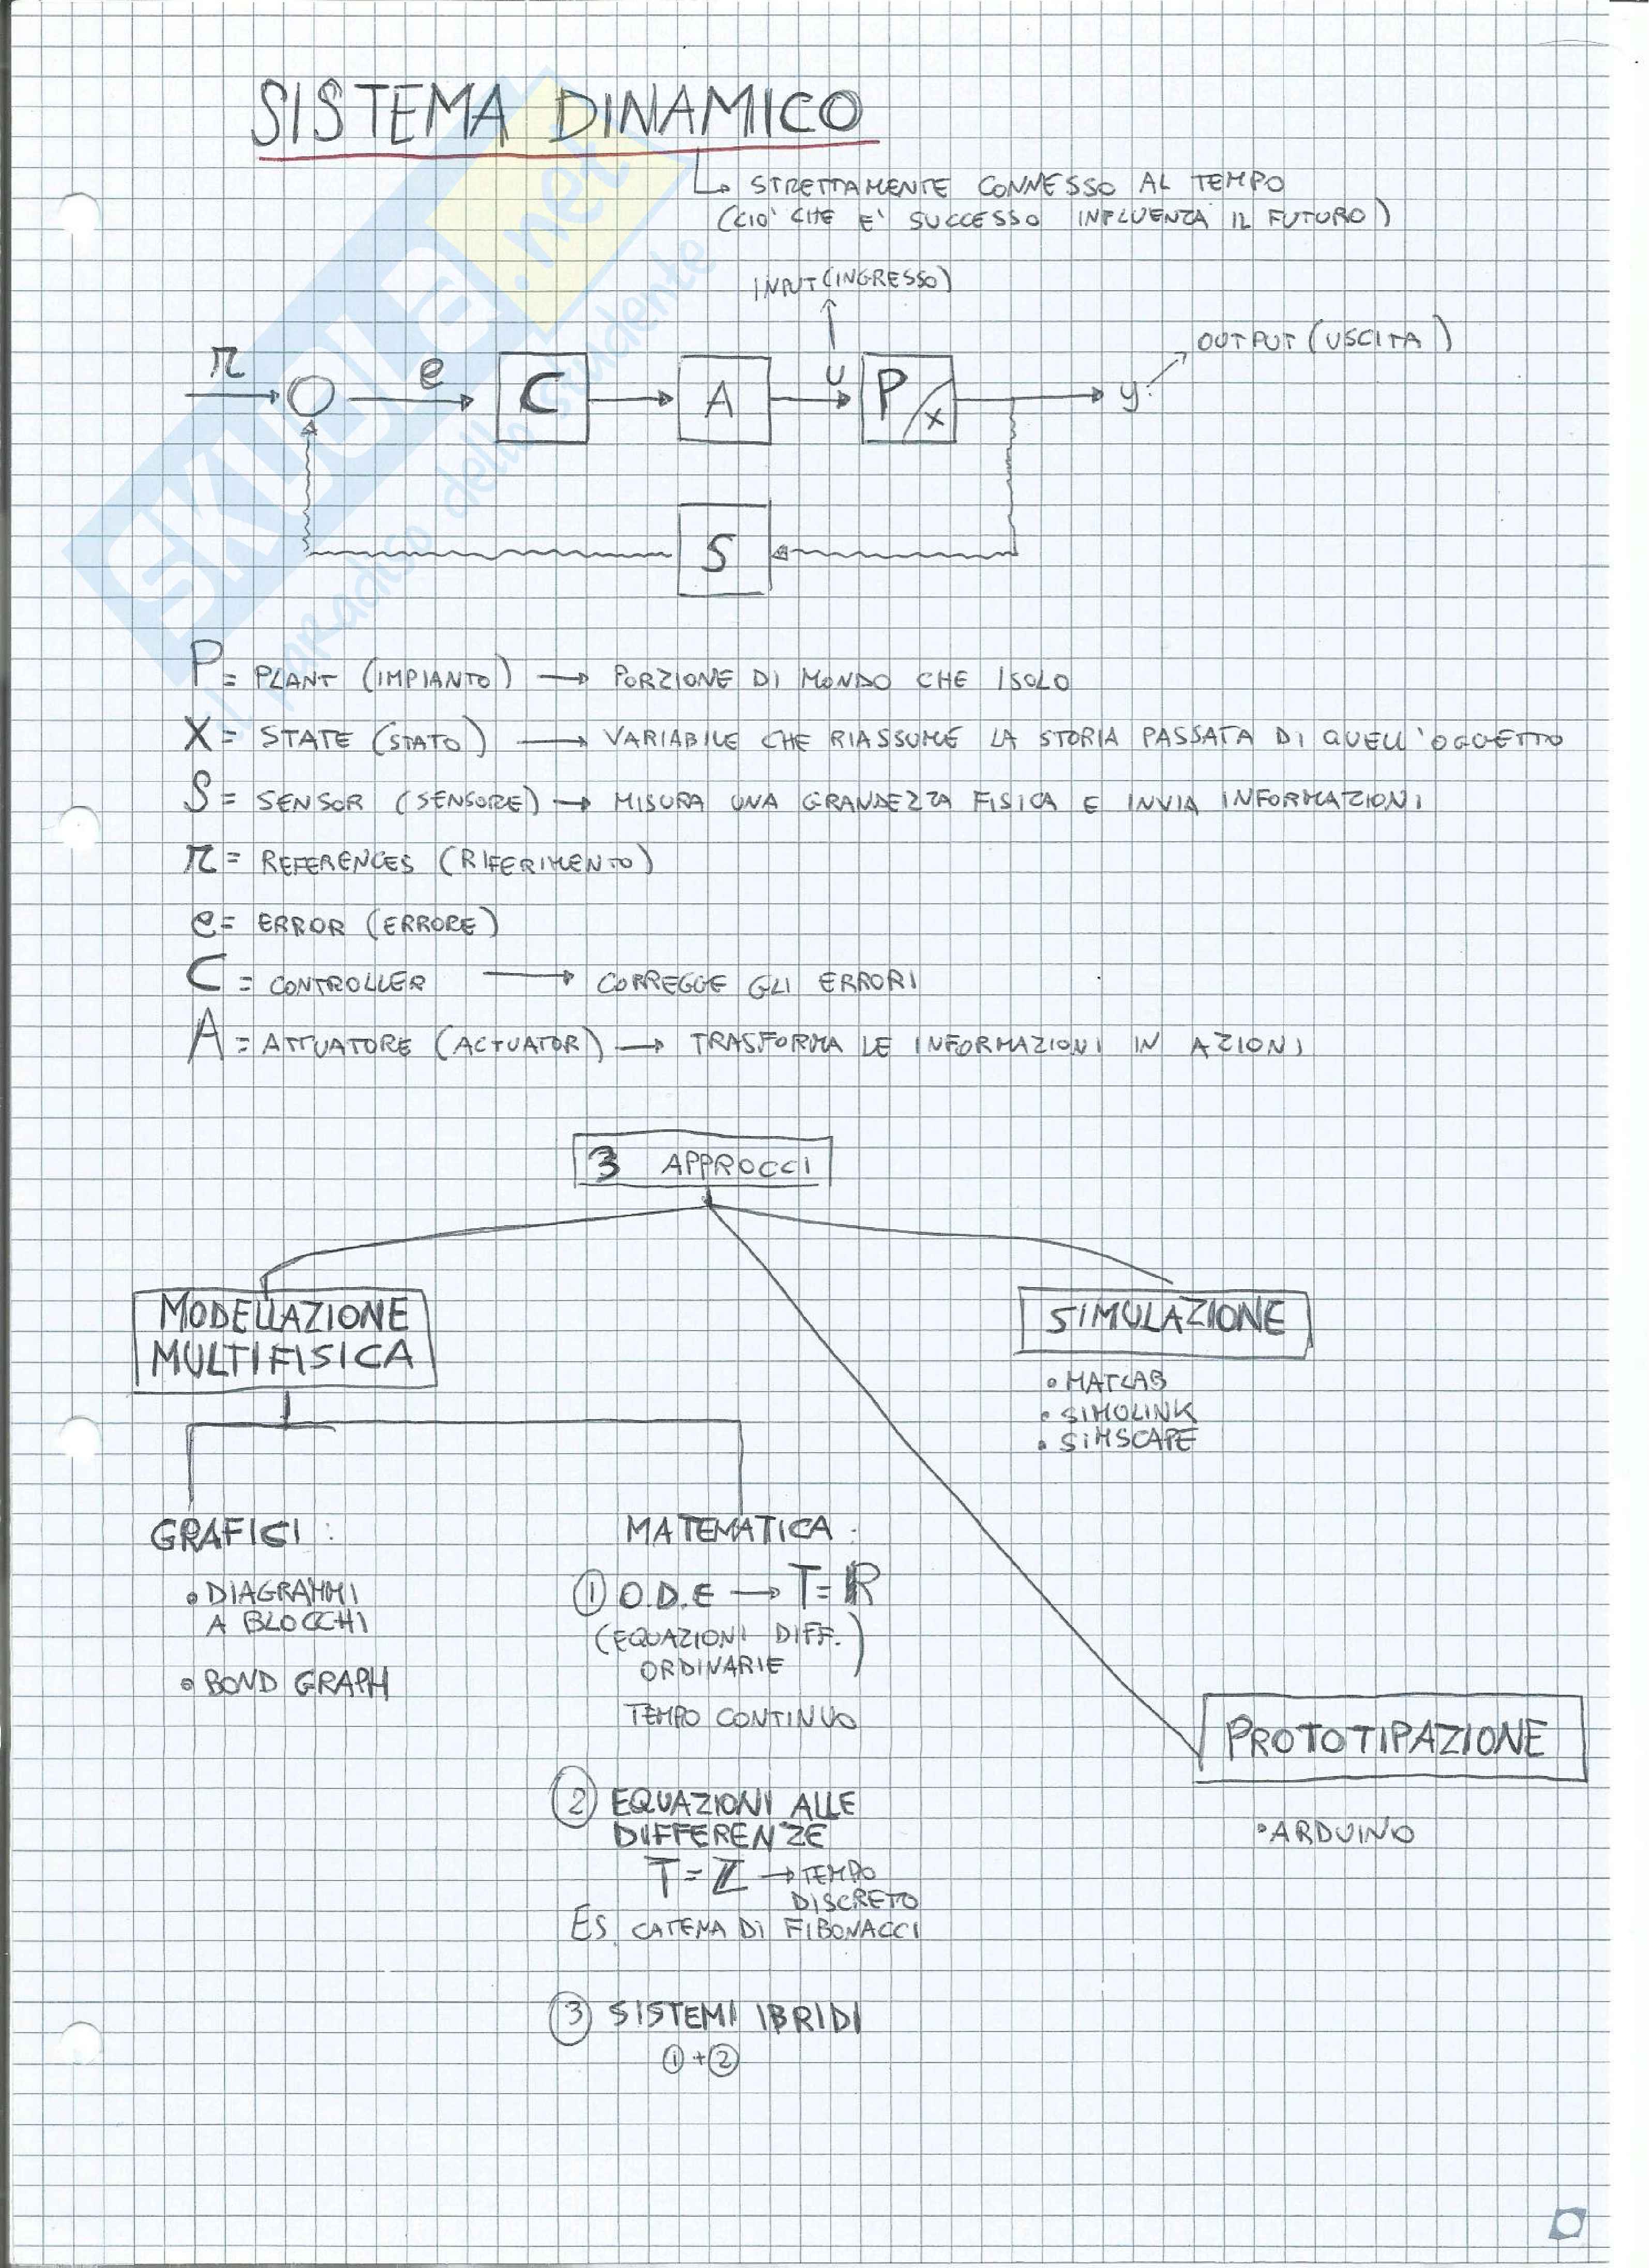 SISTEMA DINAMICO
STRETTAMENTE CONNESSO AL TEMPO
(CIO' CHE E' SUCCESSO INFLUENZA IL FUTURO)
INPUT (INGRESSO)
OUTPUT (USCITA)
r e C A u P/x y
S
P = PLANT (IMPIANTO) → PORZIONE DI MONDO CHE ISOLO
X = STATE (STATO) → VARIABILE CHE RIASSUME LA STORIA PASSATA DI QUELL'OGGETTO
S = SENSOR (SENSORE) → MISURA UNA GRANDEZZA FISICA E INVIA INFORMAZIONI
r = REFERENCES (RIFERIMENTO)
e = ERROR (ERRORE)
C = CONTROLLER → CORREGGE GLI ERRORI
A = ATTUATORE (ACTUATOR) → TRASFORMA LE INFORMAZIONI IN AZIONI
3 APPROCCI
MODELLAZIONE
MULTIFISICA
SIMULAZIONE
• MATLAB
• SIMOLINK
• SIMSCAPE
GRAFICI:
• DIAGRAMMI
A BLOCCHI
• BOND GRAPH
MATEMATICA:
① O.D.E → T=ℝ
(EQUAZIONI DIFF.
ORDINARIE)
TEMPO CONTINUO
② EQUAZIONI ALLE
DIFFERENZE
T=ℤ → TEMPO
DISCRETO
ES. CATENA DI FIBONACCI
③ SISTEMI IBRIDI
①+②
PROTOTIPAZIONE
• ARDUINO
SKUOLA.net
il paradiso dello studente